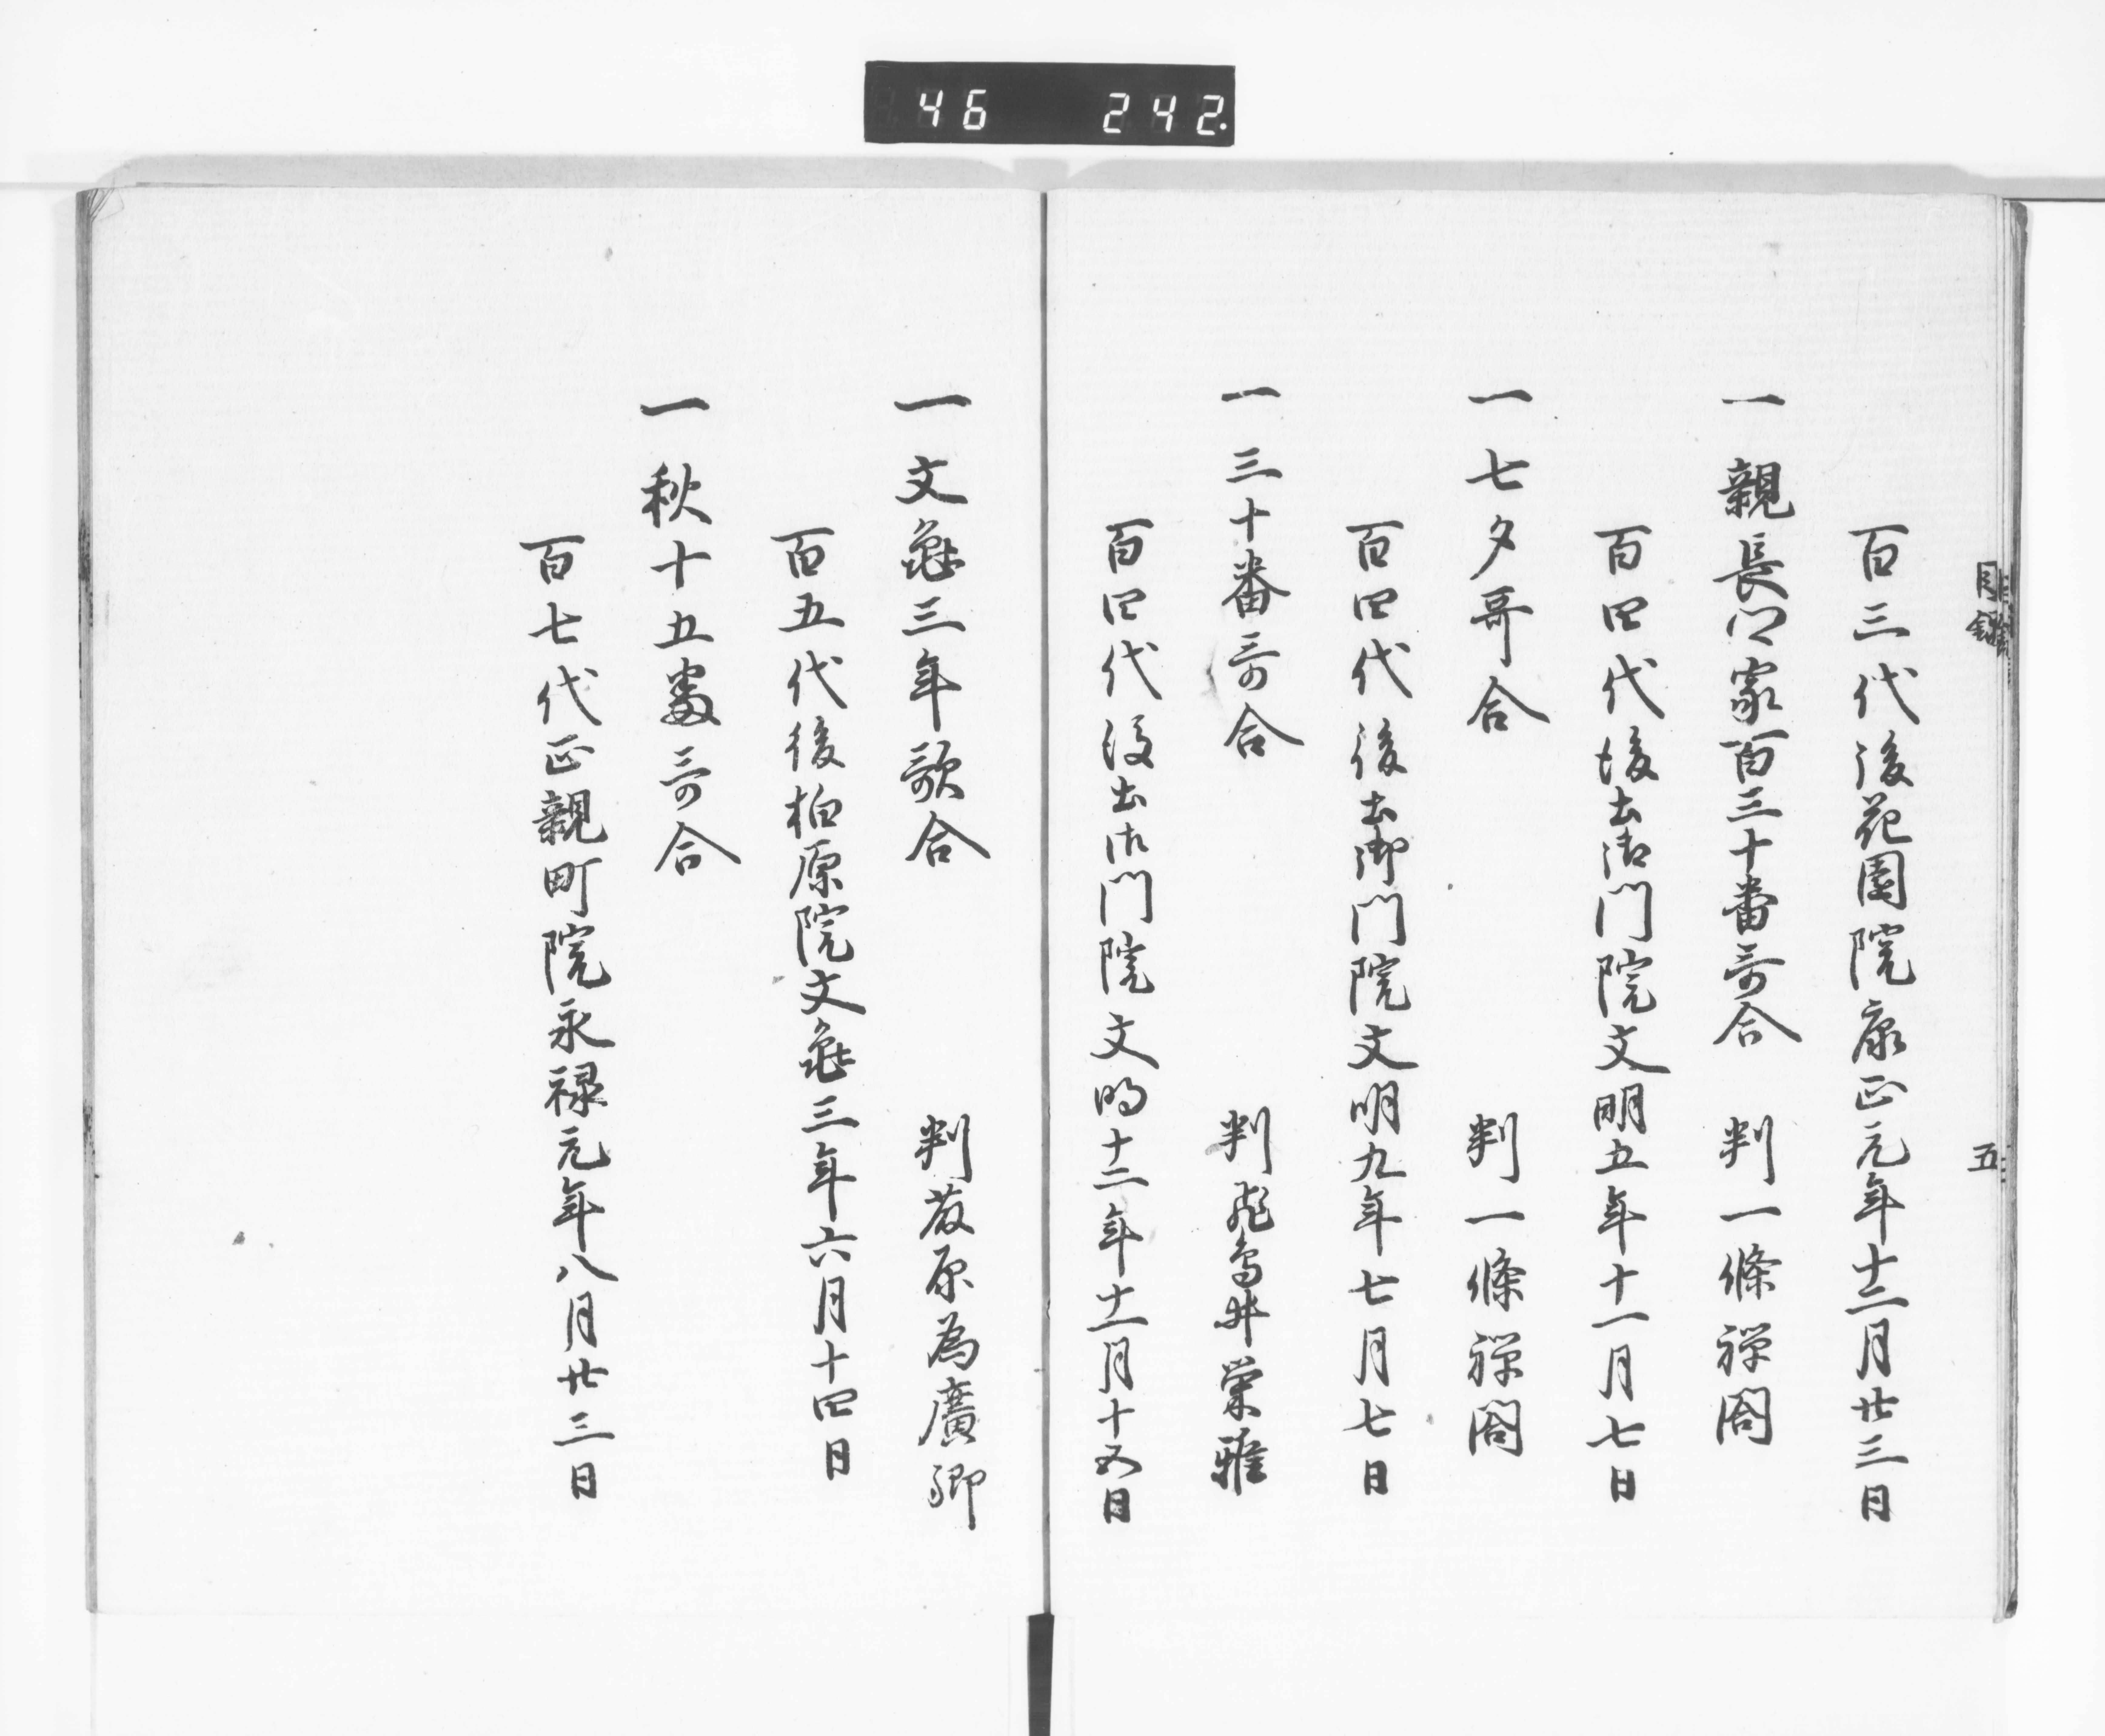 46 242.
目錄 五
百三代後花園院康正元年十二月廿三日
一 親長卿家百三十番哥合 判 一條禅閤
百四代後土御門院文明五年十一月七日
一 七夕哥合 判 一條禅閤
百四代後土御門院文明九年七月七日
一 三十番哥合 判 飛鳥井栄雅
百四代後土御門院文明十二年十一月十五日
一 文亀三年歌合 判 藤原為廣卿
百五代後柏原院文亀三年六月十四日
一 秋十五番哥合
百七代正親町院永禄元年八月廿三日